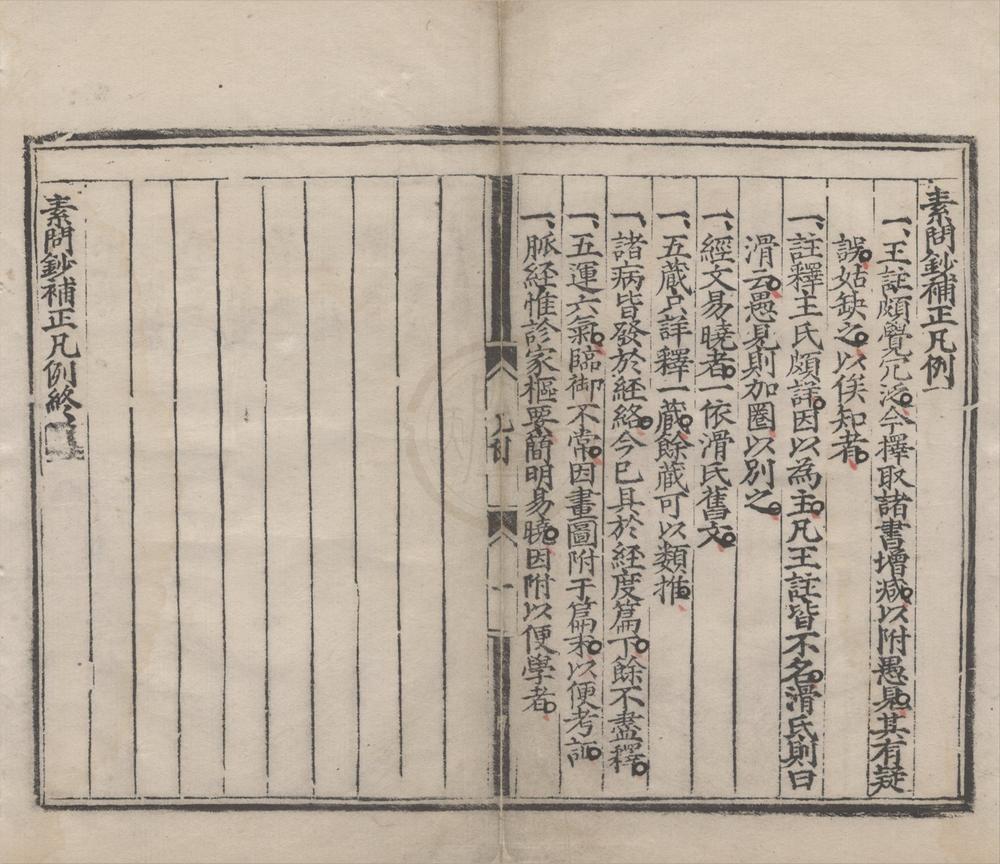 素問鈔補正凡例
一、王註頗覺冗泛。今擇取諸書增减。以附愚見。其有疑
誤。姑缺之。以俟知者。
一、註釋王氏頗詳。因以為主。凡王註皆不名。滑氏則曰
滑云。愚見則加圈以別之。
一、經文易曉者。一依滑氏舊文。
一、五藏只詳釋一藏。餘藏可以類推。
一、諸病皆發於經絡。今已具於經度篇下。餘不盡釋。
一、五運六氣。臨御不常。因畫圖附于篇末。以便考証。
一、脈經惟診家樞要簡明易曉。因附以便學者。
凡例
一
素問鈔補正凡例終